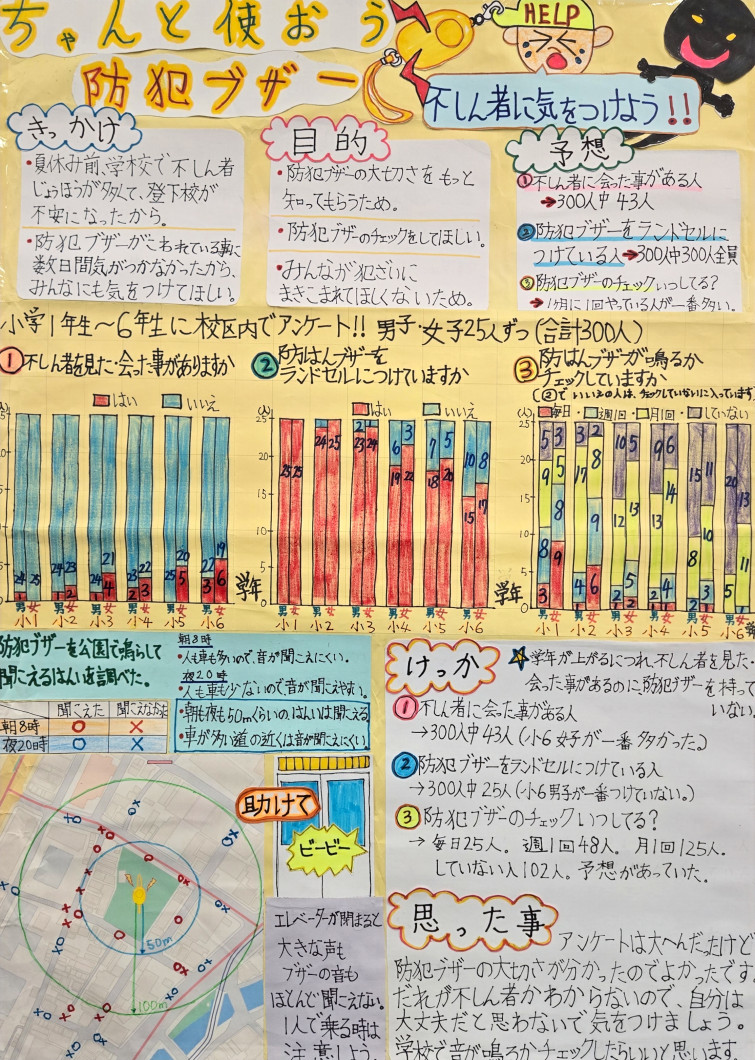 ちゃんと使おう
防犯ブザー
HELP
不しん者に気をつけよう!!
きっかけ
・夏休み前、学校で不しん者
じょうほうが多くて、登下校が
不安になったから。
・防犯ブザーがこわれている事に
数日間気がつかなかったから、
みんなにも気をつけてほしい。
目的
・防犯ブザーの大切さをもっと
知ってもらうため。
・防犯ブザーのチェックをしてほしい。
・みんなが犯ざいに
まきこまれてほしくないため。
予想
①不しん者に会った事がある人
→300人中43人
②防犯ブザーをランドセルに
つけている人→300人中300人全員
③防犯ブザーのチェックいつしてる?
→1か月に1回やっている人が一番多い。
小学1年生~6年生に校区内でアンケート!!男子・女子25人ずつ(合計300人)
①不しん者を見た・会った事がありますか
はい いいえ
(人)
25
24 25 24 23 21 22 23 25 20 22 19
2 4 2 3 5 3 6
男女 男女 男女 男女 男女 男女
小1 小2 小3 小4 小5 小6
学年
②防はんブザーを
ランドセルにつけていますか
はい いいえ
(人)
25
20
15
10
5
0
2 6 3 7 5 10 8
25 25 24 25 23 24 19 22 18 20 15 17
男女 男女 男女 男女 男女 男女
小1 小2 小3 小4 小5 小6
学年
③防はんブザーが鳴るか
チェックしていますか
(②でいいえの人は、チェックしていないに入っています)
毎日・週1回・月1回・していない
(人)
25
20
15
10
5
0
5 3 3 2 10 5 9 6 15 11 20 13
9 5 17 8 12 13 13 14 8 10 5 11
8 8 4 9 2 5 2 4 2 3
3 9 6 2
男女 男女 男女 男女 男女 男女
小1 小2 小3 小4 小5 小6
防犯ブザーを公園で鳴らして
聞こえるはんいを調べた。
聞こえた 聞こえなかった
朝8時 ○ ×
夜20時 ○ ×
朝8時
・人も車も多いので、音が聞こえにくい。
夜20時
・人も車も少ないので音が聞こえやすい。
・朝も夜も50mぐらいのはんいは聞こえる。
・車が多い道の近くは音が聞こえにくい。
50m
100m
助けて
ビービー
エレベーターが閉まると
大きな声も
ブザーの音も
ほとんど聞こえない。
1人で乗る時は
注意しよう。
けっか
☆学年が上がるにつれ、不しん者を見た・
会った事があるのに、防犯ブザーを持って
いない。
①不しん者に会った事がある人
→300人中43人(小6女子が一番多かった。)
②防犯ブザーをランドセルにつけている人
→300人中25人(小6男子が一番つけていない。)
③防犯ブザーのチェックいつしてる?
→毎日25人。週1回48人。月1回125人。
していない人102人。予想があっていた。
思った事
アンケートは大へんだったけど
防犯ブザーの大切さが分かったのでよかったです。
だれが不しん者かわからないので、自分は
大丈夫だと思わないで気をつけましょう。
学校で音が鳴るかチェックしたらいいと思います。